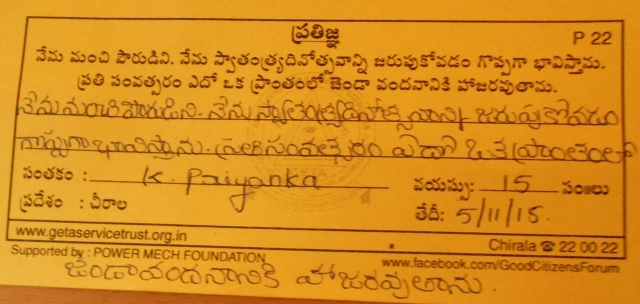 ప్రతిజ్ఞ
P 22
నేను మంచి పౌరుడిని. నేను స్వాతంత్ర్యదినోత్సవాన్ని జరుపుకోవడం గొప్పగా భావిస్తాను.
ప్రతి సంవత్సరం ఎదో ఒక ప్రాంతంలో జెండా వందనానికి హాజరవుతాను.
నేను మంచి పౌరుడిని. నేను స్వాతంత్ర్యదినోత్సవాన్ని జరుపుకోవడం
గొప్పగా భావిస్తాను. ప్రతి సంవత్సరం ఎదో ఒక ప్రాంతంలో
సంతకం : K. Priyanka వయస్సు: 15 సం॥లు
ప్రదేశం : చీరాల తేదీ: 5/11/15.
www.getaservicetrust.org.in Chirala ☎ 22 00 22
Supported by : POWER MECH FOUNDATION www.facebook.com/GoodCitizensForum
జెండా వందనానికి హాజరవుతాను.